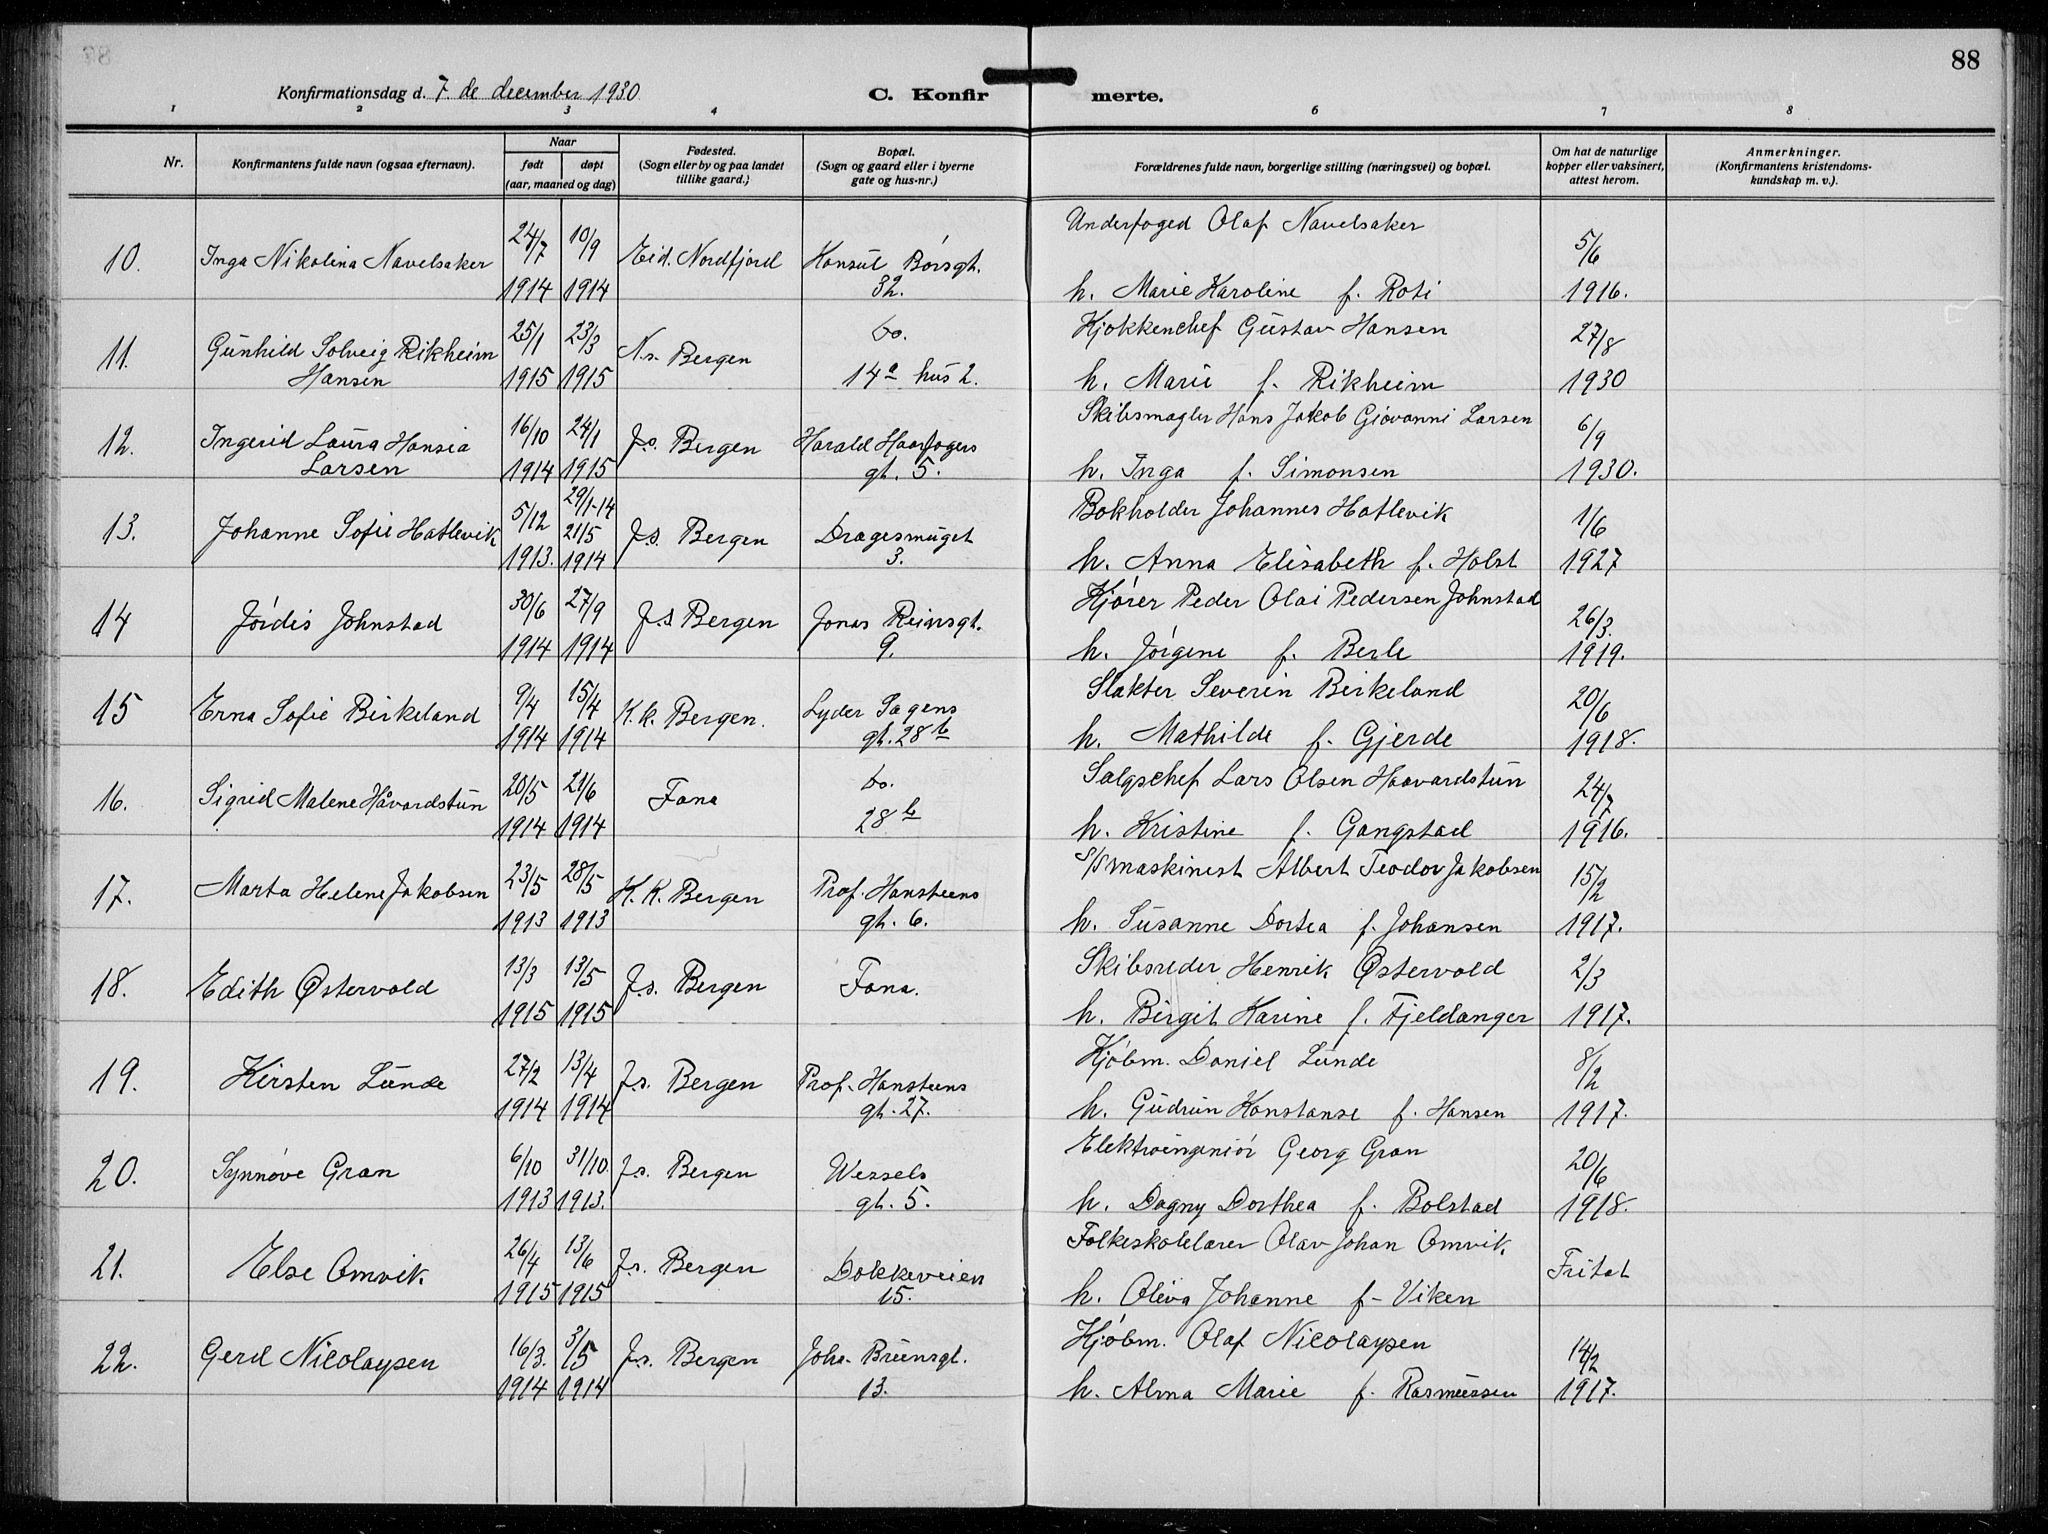 88
Konfirmationsdag d. 7. de december 1930
C. Konfirmerte.
1 2 3 4 6 7 8
Nr.
Konfirmantens fulde navn (ogsaa efternavn).
Naar
født døpt
(aar, maaned og dag)
Fødested.
(Sogn eller by og paa landet
tillike gaard.)
Bopæl.
(Sogn og gaard eller i byerne
gate og hus-nr.)
Forældrenes fulde navn, borgerlige stilling (næringsvei) og bopæl.
Om hat de naturlige
kopper eller vaksinert,
attest herom.
Anmerkninger.
(Konfirmantens kristendoms-
kundskap m. v.).
Underfoged Olaf Navelsaker
10. Inga Nikolina Navelsaker 24/7 10/9 Eid. Nordfjord Konsul Børsgt. 5/6
1914 1914 32. h. Marie Karoline f. Roti 1916.
11. Gunhild Solveig Rikheim 25/1 23/3 N.s. Bergen do. Kjøkkenchef Gustav Hansen 27/8
Hansen 1915 1915 14a hus 2. h. Marie f. Rikheim 1930
12. Ingerid Laura Hansia 16/10 24/1 J.s. Bergen Harald Haarfagers Skibsmægler Hans Jakob Giovanni Larsen 6/9
Larsen 1914 1915 gt. 5. h. Inga f. Simonsen 1930.
13. Johanne Sofie Hatlevik 5/12 29/1-14 21/5 J.s. Bergen Dragesmuget Bokholder Johannes Hatlevik 1/6
1913. 1914 3. h. Anna Elisabeth f. Holst 1927
14 Jórdis Johnstad 30/6 27/9 J.s Bergen Jonas Reinsgt. Kjører Peder Olai Pedersen Johnstad 26/3.
1914 1914 9. h. Jørgine f. Berle 1919.
15 Erna Sofie Birkeland 9/4 15/4 K.k. Bergen. Lyder Sagens Slakter Severin Birkeland 20/6
1914 1914 gt. 28b h. Mathilde f. Gjerde 1918.
16. Sigrid Malene Håvardstun 20/5 21/6 Fana do. Salgschef Lars Olsen Haavardstun 24/7
1914 1914 28b h. Kristine f. Gangstad 1916.
17. Marta Helene Jakobsen 23/5 28/5 K.K. Bergen Prof. Hansteens S/S maskinist Albert Teodor Jakobsen 15/2
1913 1913 gt. 6. h. Susanne Dortea f. Johansen 1917.
18. Edith Østervold 13/3 13/5 J.s. Bergen Fana. Skibsreder Henrik Østervold 2/3
1915 1915 h. Birgit Karine f. Fjeldanger 1917.
19. Kirsten Lunde 27/2 13/4 J.s. Bergen Prof. Hansteens Kjøbm. Daniel Lunde 8/2
1914 1914 gt. 27. h. Gudrun Konstanse f. Hansen 1917.
20. Synnøve Gran 6/10 31/10. J.s. Bergen Wessels Elektroingeniør Georg Gran 20/6
1913 1913. gt. 5. h. Dagny Dorthea f. Bolstad 1918.
21. Else Omvik 26/4 13/6 J.s. Bergen Dokkeveien Folkeskolelærer Olav Johan Omvik Fritat
1915 1915 15. h. Oliva Johanne f. Viken
22. Gerd Nicolaysen 16/3. 3/5 J.s. Bergen Joha. Brunsgt. Kjøbm. Olaf Nicolaysen 14/2
1914 1914 13. h. Alma Marie f. Rasmussen 1917.